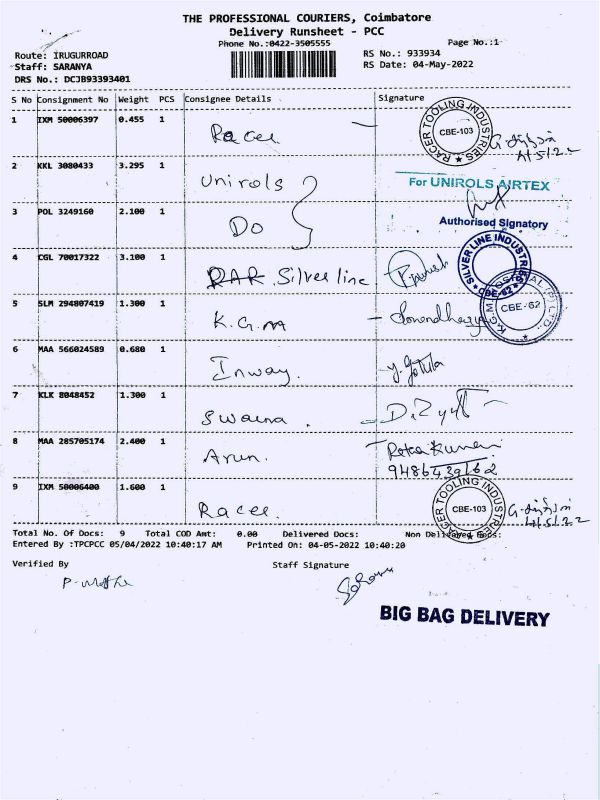 THE PROFESSIONAL COURIERS, Coimbatore
Delivery Runsheet - PCC
Phone No.:0422-3505555
Page No.:1
Route: IRUGURROAD
RS No.: 933934
Staff: SARANYA
RS Date: 04-May-2022
DRS No.: DCJB93393401
S No Consignment No Weight PCS Consignee Details Signature
1 IXM 50006397 0.455 1 Racer
RACER TOOLING INDUSTRIES
CBE-103
4/5/22
2 KKL 3080433 3.295 1 Unirols
For UNIROLS AIRTEX
3 POL 3249160 2.100 1 Do
Authorised Signatory
4 CGL 70017322 3.100 1 Silverline
SILVER LINE INDUSTRIES
CBE-62
5 SLM 294807419 1.300 1 K.G.M
CBE-62
6 MAA 566024589 0.680 1 Inway.
7 KLK 8048452 1.300 1 Swarna.
8 MAA 285705174 2.400 1 Arun.
9486439162
9 IXM 50006400 1.600 1 Racer.
RACER TOOLING INDUSTRIES
CBE-103
4/5/22
Total No. Of Docs: 9 Total COD Amt: 0.00 Delivered Docs: Non Delivered Docs:
Entered By :TPCPCC 05/04/2022 10:40:17 AM Printed On: 04-05-2022 10:40:20
Verified By Staff Signature
BIG BAG DELIVERY